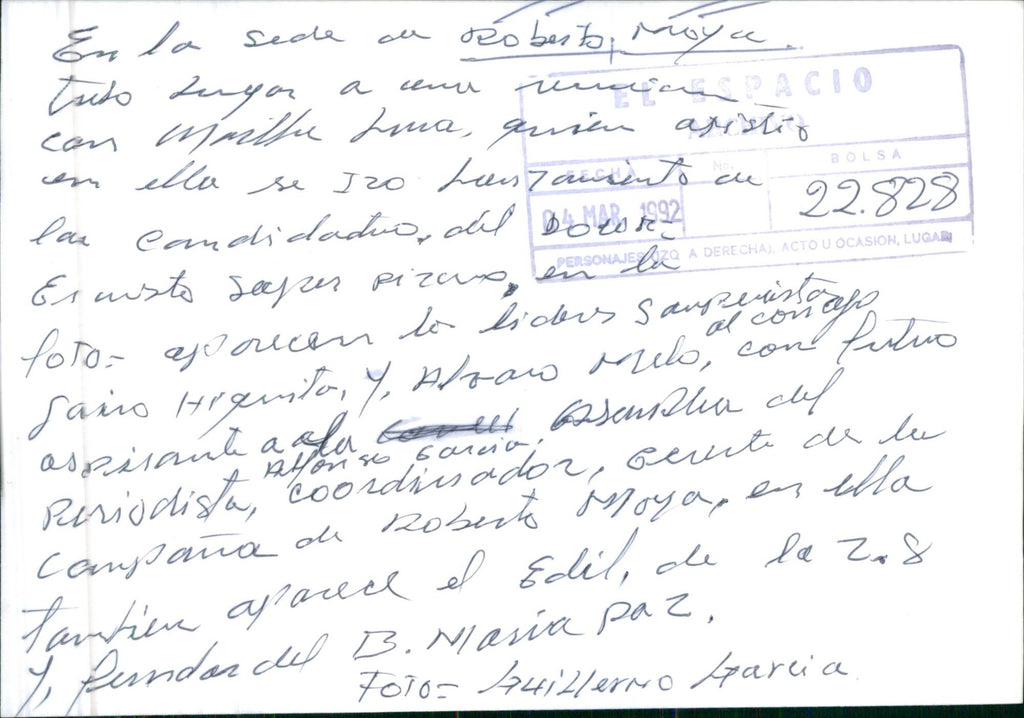 En la sede de Roberto, Moya.
tubo Lugar a una reunion
con Martha Luna, quien asistio
en ella se Izo Lanzamiento de
las candidatura, del Doctor
Ernesto Samper Pizano, en la
foto= aparecen los lideres Samperista
Jairo Higuita, y, Alvaro Melo, con futuro
al consejo
aspirante a la Asamblea del
Alfonso Garcia
Periodista, coordinador, Gerente de la
campaña de Roberto Moya, en ella
tambien aparece el Edil, de la Z.8
y, fundador del B. Maria Paz.
Foto= Guillermo Garcia
EL ESPACIO
ARCHIVO
FECHA
No.
BOLSA
04 MAR. 1992
22.828
PERSONAJES (IZQ. A DERECHA), ACTO U OCASION, LUGAR